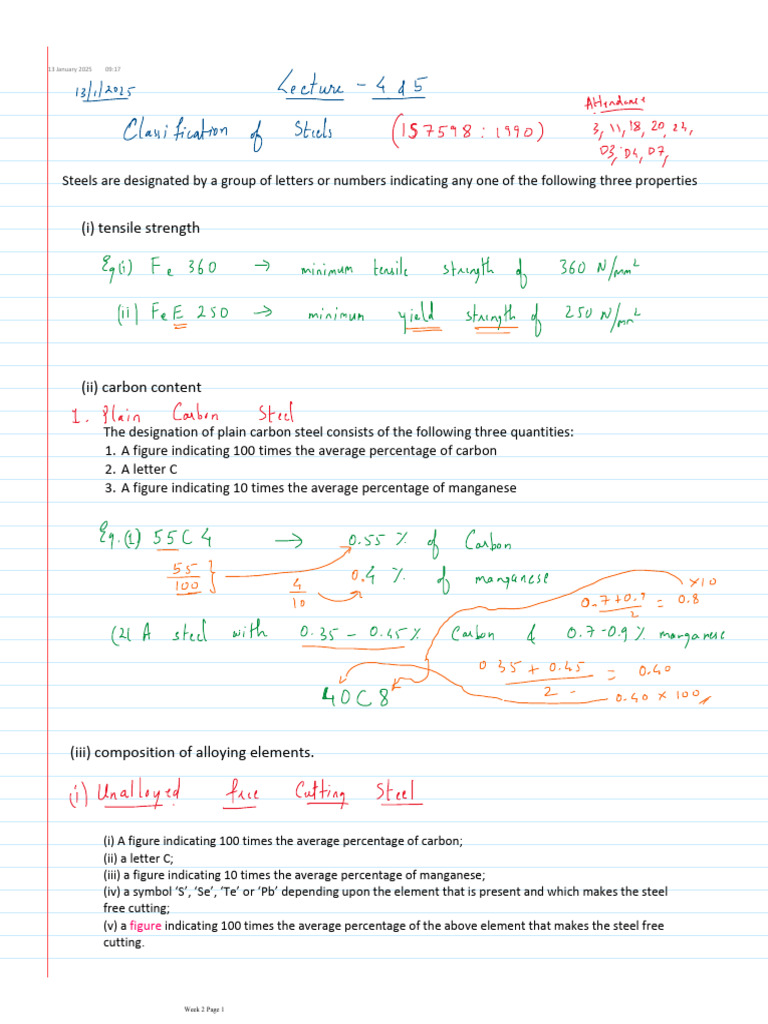 13 January 2025 09:17
13/1/2025
Lecture - 4 & 5
Attendance
3, 11, 18, 20, 24,
D3, D4, D7,
Classification of Steels (IS 7598 : 1990)
Steels are designated by a group of letters or numbers indicating any one of the following three properties
(i) tensile strength
Eg(i) Fe 360 → minimum tensile strength of 360 N/mm²
(ii) FeE 250 → minimum yield strength of 250 N/mm²
(ii) carbon content
1. Plain Carbon Steel
The designation of plain carbon steel consists of the following three quantities:
1. A figure indicating 100 times the average percentage of carbon
2. A letter C
3. A figure indicating 10 times the average percentage of manganese
Eg.(1) 55C4 → 0.55 % of Carbon
55/100
4/10
0.4 % of manganese
×10
0.7+0.9/2 = 0.8
(2) A steel with 0.35 - 0.45% Carbon & 0.7-0.9% manganese
0.35 + 0.45/2 = 0.40
0.40 × 100
40C8
(iii) composition of alloying elements.
(i) Unalloyed free Cutting Steel
(i) A figure indicating 100 times the average percentage of carbon;
(ii) a letter C;
(iii) a figure indicating 10 times the average percentage of manganese;
(iv) a symbol ‘S’, ‘Se’, ‘Te’ or ‘Pb’ depending upon the element that is present and which makes the steel
free cutting;
(v) a figure indicating 100 times the average percentage of the above element that makes the steel free
cutting.
Week 2 Page 1